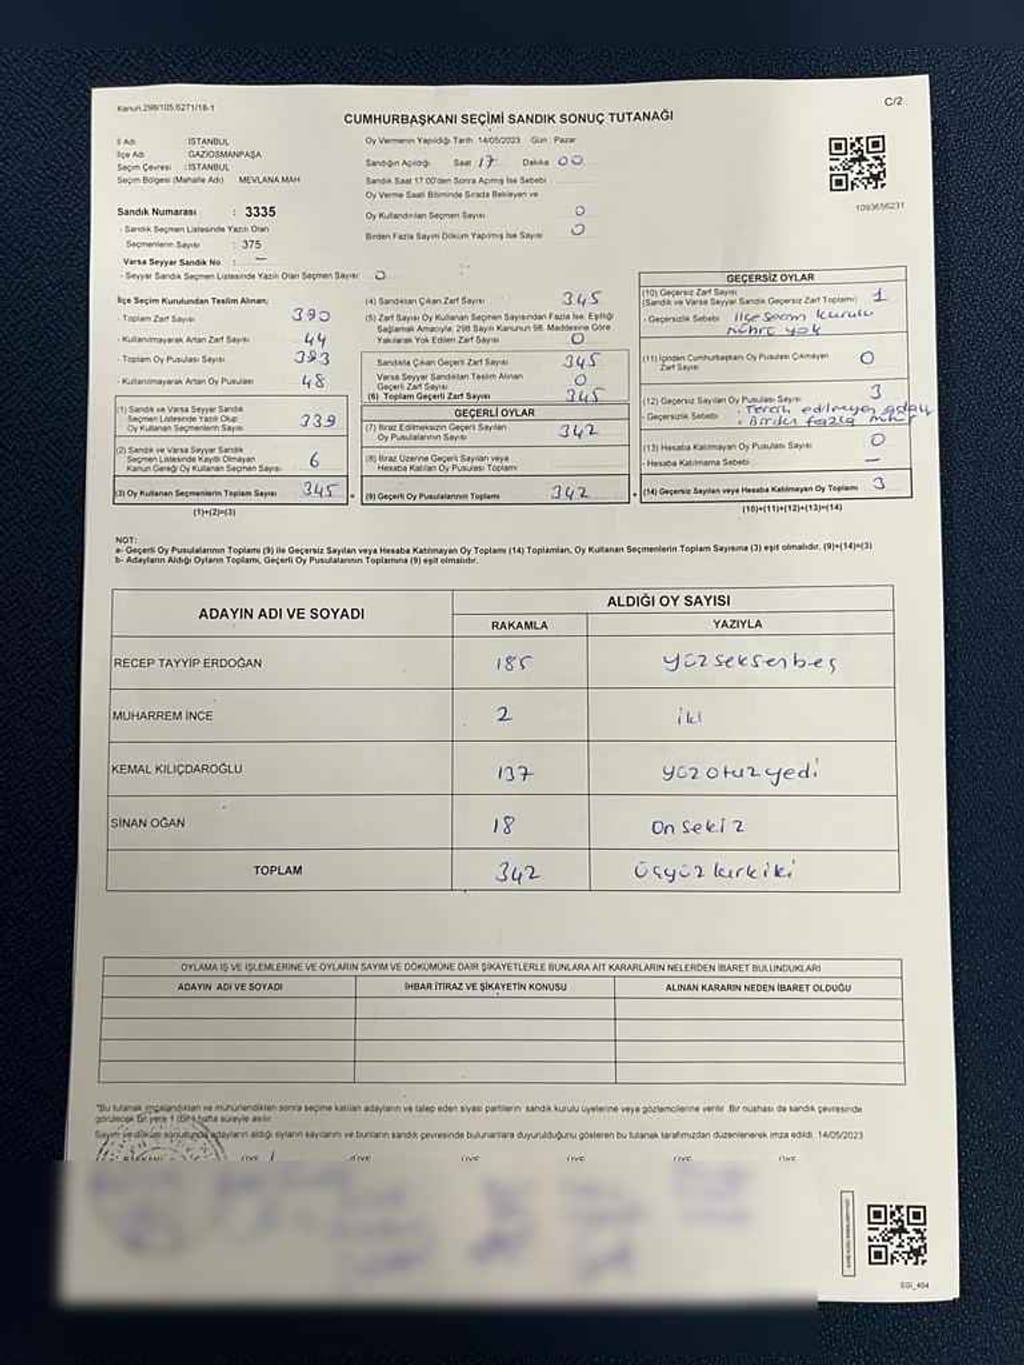 Kanun.298/105,6271/18-1
C/2
CUMHURBAŞKANI SEÇİMİ SANDIK SONUÇ TUTANAĞI
İl Adı : İSTANBUL
İlçe Adı : GAZİOSMANPAŞA
Seçim Çevresi : İSTANBUL
Seçim Bölgesi (Mahalle Adı) MEVLANA MAH
Sandık Numarası : 3335
- Sandık Seçmen Listesinde Yazılı Olan
Seçmenlerin Sayısı : 375
Varsa Seyyar Sandık No : —
- Seyyar Sandık Seçmen Listesinde Yazılı Olan Seçmen Sayısı : 0
Oy Vermenin Yapıldığı Tarih 14/05/2023 Gün : Pazar
Sandığın Açıldığı Saat 17 Dakika 00
Sandık Saat 17:00'den Sonra Açılmış İse Sebebi
Oy Verme Saati Bitiminde Sırada Bekleyen ve
Oy Kullandırılan Seçmen Sayısı 0
Birden Fazla Sayım Döküm Yapılmış İse Sayısı 0
1093656231
İlçe Seçim Kurulundan Teslim Alınan;
- Toplam Zarf Sayısı 390
- Kullanılmayarak Artan Zarf Sayısı 44
- Toplam Oy Pusulası Sayısı 393
- Kullanılmayarak Artan Oy Pusulası 48
(1) Sandık ve Varsa Seyyar Sandık
Seçmen Listesinde Yazılı Olup;
Oy Kullanan Seçmenlerin Sayısı 339
(2) Sandık ve Varsa Seyyar Sandık
Seçmen Listesinde Kayıtlı Olmayan
Kanun Gereği Oy Kullanan Seçmen Sayısı 6
(3) Oy Kullanan Seçmenlerin Toplam Sayısı 345 =
(1)+(2)=(3)
(4) Sandıktan Çıkan Zarf Sayısı 345
(5) Zarf Sayısı Oy Kullanan Seçmen Sayısından Fazla İse, Eşitliği
Sağlamak Amacıyla, 298 Sayılı Kanunun 98. Maddesine Göre
Yakılarak Yok Edilen Zarf Sayısı 0
Sandıkta Çıkan Geçerli Zarf Sayısı 345
Varsa Seyyar Sandıktan Teslim Alınan
Geçerli Zarf Sayısı 0
(6) Toplam Geçerli Zarf Sayısı 345
GEÇERLİ OYLAR
(7) İtiraz Edilmeksizin Geçerli Sayılan
Oy Pusulalarının Sayısı 342
(8) İtiraz Üzerine Geçerli Sayılan veya
Hesaba Katılan Oy Pusulası Toplamı
(9) Geçerli Oy Pusulalarının Toplamı 342 +
GEÇERSİZ OYLAR
(10) Geçersiz Zarf Sayısı
(Sandık ve Varsa Seyyar Sandık Geçersiz Zarf Toplamı) 1
- Geçersizlik Sebebi : ilçe seçim kurulu
mührü yok
(11) İçinden Cumhurbaşkanı Oy Pusulası Çıkmayan
Zarf Sayısı 0
(12) Geçersiz Sayılan Oy Pusulası Sayısı 3
- Geçersizlik Sebebi : Tercih edilmeyen aday
Birden fazla mühür
(13) Hesaba Katılmayan Oy Pusulası Sayısı 0
- Hesaba Katılmama Sebebi : —
(14) Geçersiz Sayılan veya Hesaba Katılmayan Oy Toplamı 3
(10)+(11)+(12)+(13)=(14)
NOT:
a- Geçerli Oy Pusulalarının Toplamı (9) ile Geçersiz Sayılan veya Hesaba Katılmayan Oy Toplamı (14) Toplamları, Oy Kullanan Seçmenlerin Toplam Sayısına (3) eşit olmalıdır. (9)+(14)=(3)
b- Adayların Aldığı Oyların Toplamı, Geçerli Oy Pusulalarının Toplamına (9) eşit olmalıdır.
ADAYIN ADI VE SOYADI
ALDIĞI OY SAYISI
RAKAMLA YAZIYLA
RECEP TAYYİP ERDOĞAN 185 yüzseksenbeş
MUHARREM İNCE 2 iki
KEMAL KILIÇDAROĞLU 137 yüzotuzyedi
SİNAN OĞAN 18 Onsekiz
TOPLAM 342 üçyüzkırkiki
OYLAMA İŞ VE İŞLEMLERİNE VE OYLARIN SAYIM VE DÖKÜMÜNE DAİR ŞİKAYETLERLE BUNLARA AİT KARARLARIN NELERDEN İBARET BULUNDUKLARI
ADAYIN ADI VE SOYADI İHBAR İTİRAZ VE ŞİKAYETİN KONUSU ALINAN KARARIN NEDEN İBARET OLDUĞU
*Bu tutanak imzalandıktan ve mühürlendikten sonra seçime katılan adayların ve talep eden siyasi partilerin sandık kurulu üyelerine veya gözlemcilerine verilir. Bir nüshası da sandık çevresinde
görülecek bir yere 1 (bir) hafta süreyle asılır.
Sayım ve döküm sonunda adayların aldığı oyların sayılarını ve bunların sandık çevresinde bulunanlara duyurulduğunu gösteren bu tutanak tarafımızdan düzenlenerek imza edildi. 14/05/2023
BAŞKANI ÜYE ÜYE ÜYE ÜYE ÜYE ÜYE
SGI_404